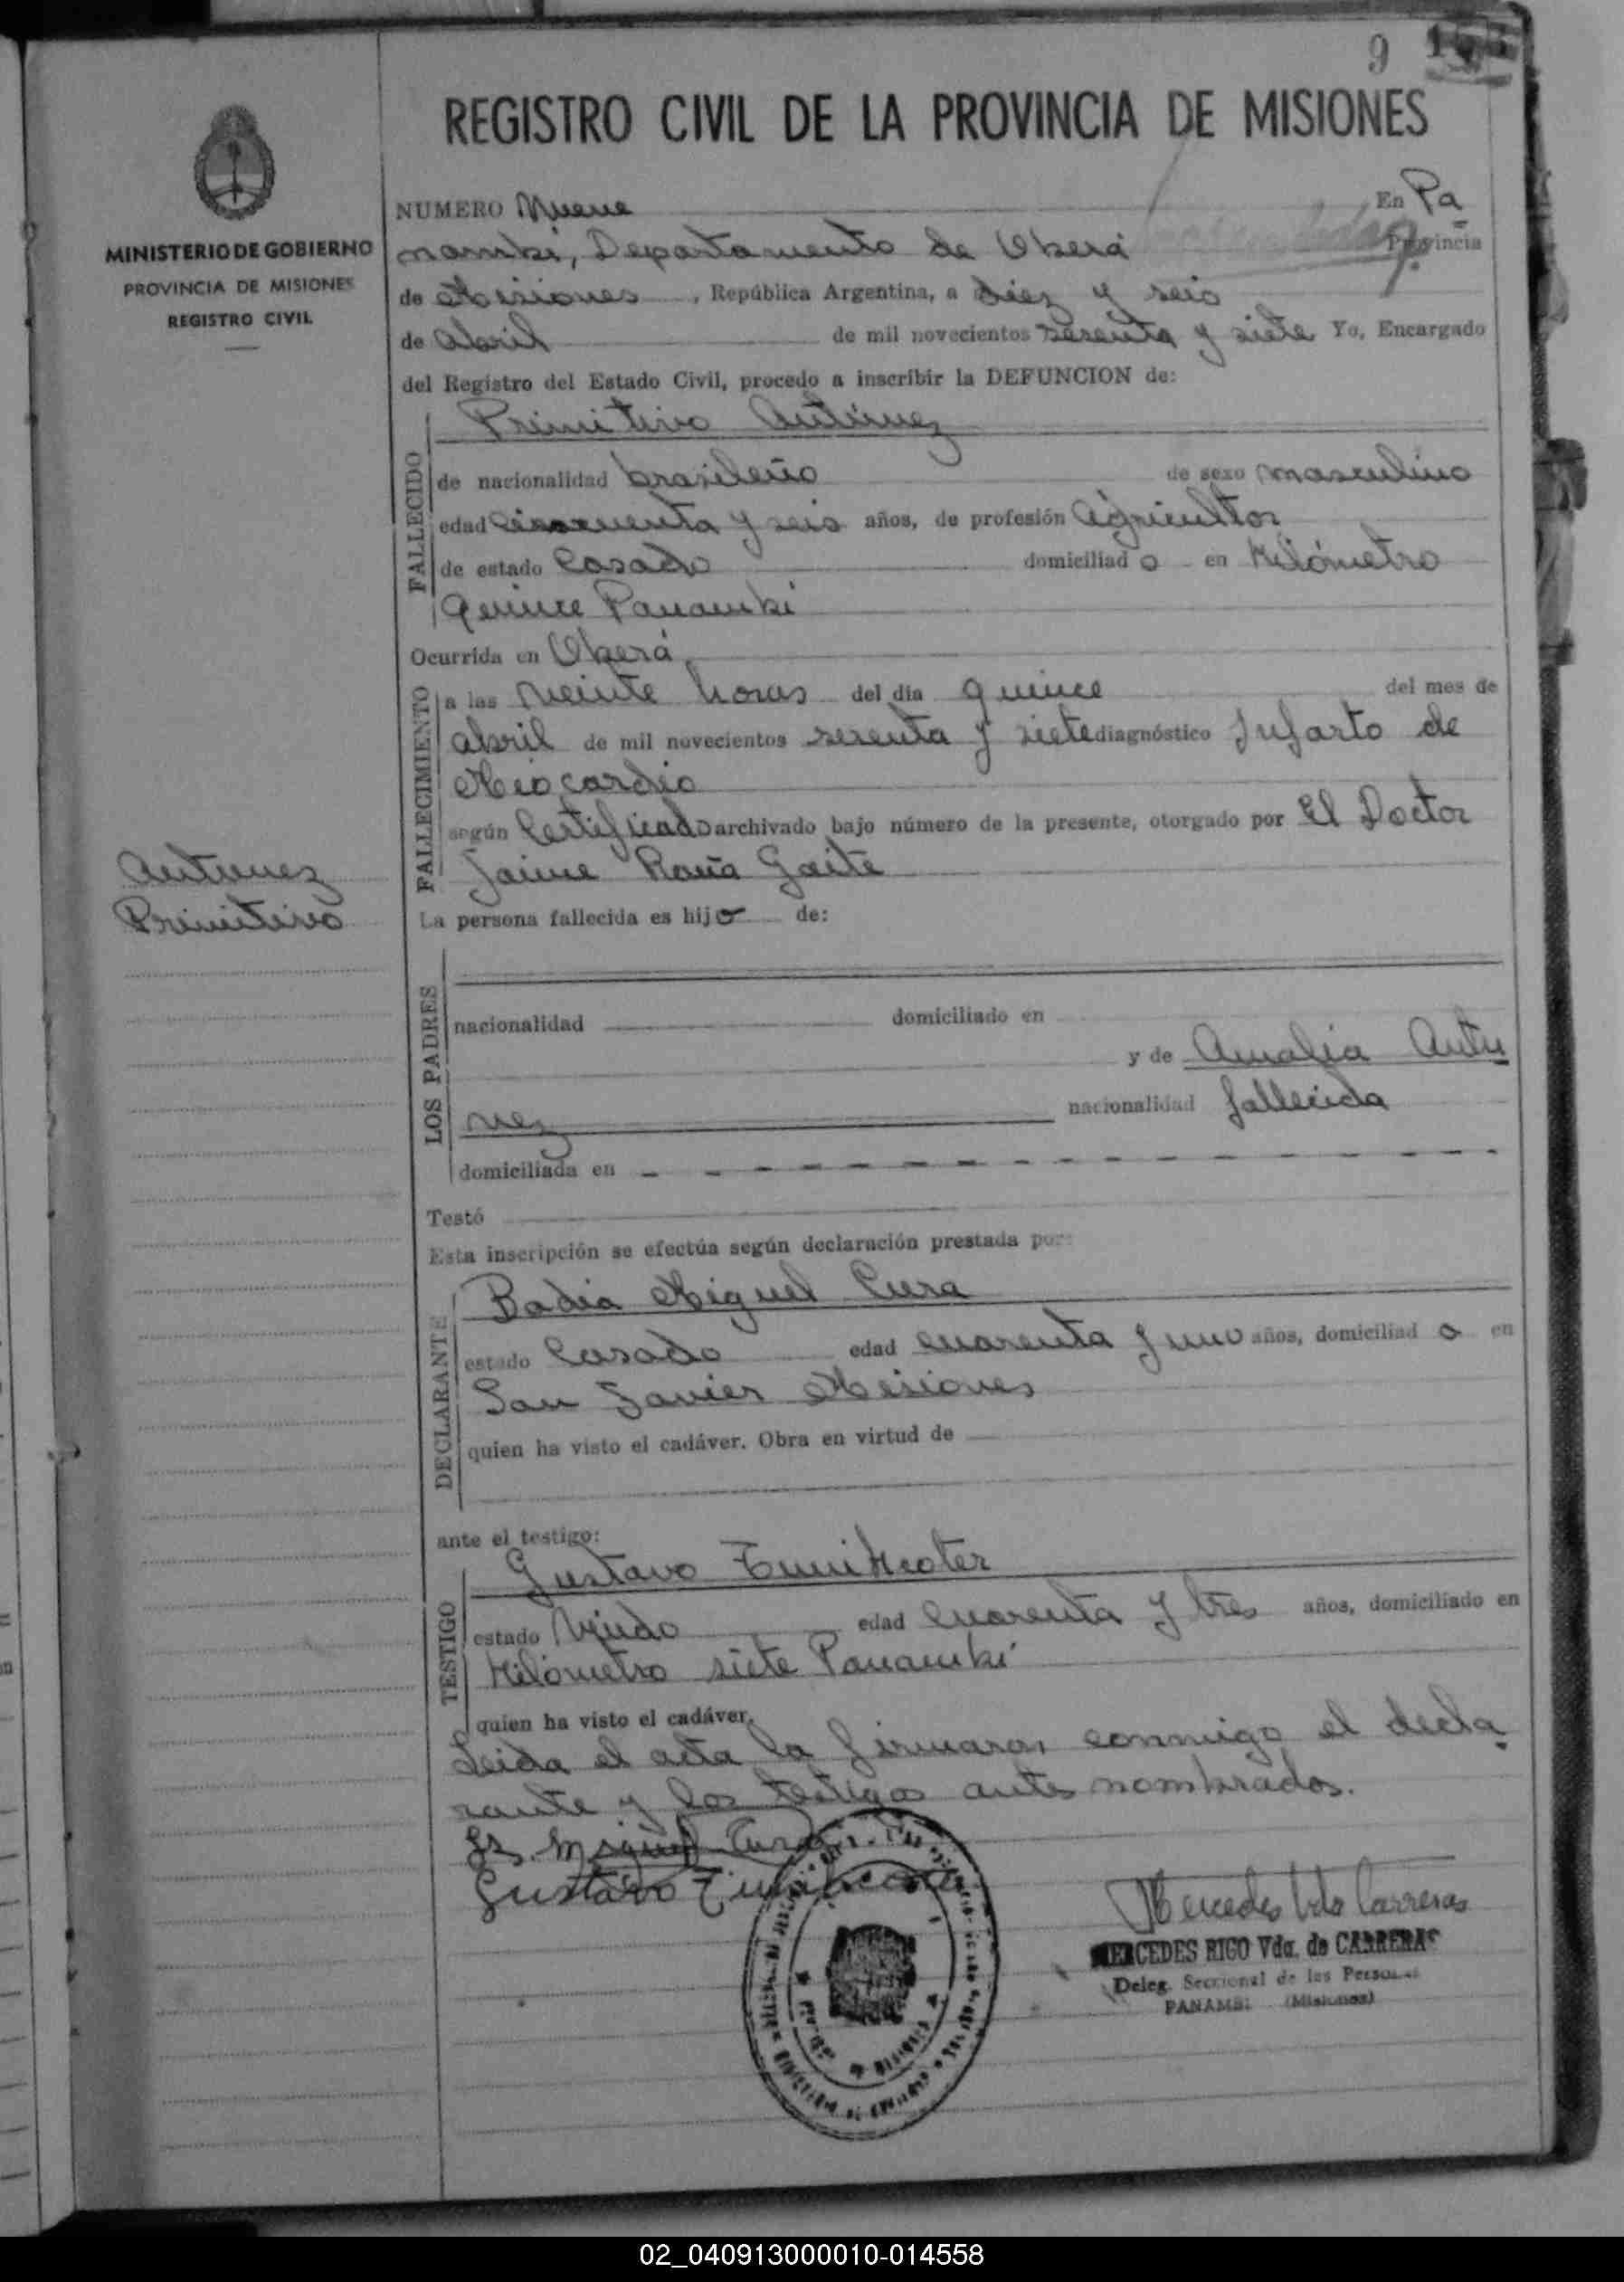 9
REGISTRO CIVIL DE LA PROVINCIA DE MISIONES
MINISTERIO DE GOBIERNO
PROVINCIA DE MISIONES
REGISTRO CIVIL
NUMERO Nueve En Pa
nambí, Departamento de Oberá Provincia
de Misiones, República Argentina, a diez y seis
de abril de mil novecientos sesenta y siete Yo, Encargado
del Registro del Estado Civil, procedo a inscribir la DEFUNCION de:
FALLECIDO
Primitivo Antúnez
de nacionalidad brasileño de sexo masculino
edad cincuenta y seis años, de profesión agricultor
de estado Casado domiciliado en Kilómetro
quince Panambí
Ocurrida en Oberá
FALLECIMIENTO
a las veinte horas del día quince del mes de
abril de mil novecientos sesenta y siete diagnóstico Infarto de
Miocardio
según Certificado archivado bajo número de la presente, otorgado por El Doctor
Jaime Gaite
Antunez
Primitivo
La persona fallecida es hijo de:
LOS PADRES
nacionalidad domiciliado en
y de Amalia Antu
nez nacionalidad fallecida
domiciliada en
Testó
Esta inscripción se efectúa según declaración prestada por:
DECLARANTE
Badia Miguel Cura
estado Casado edad cuarenta y uno años, domiciliado en
San Javier Misiones
quien ha visto el cadáver. Obra en virtud de
ante el testigo:
TESTIGO
Gustavo
estado Viudo edad cuarenta y tres años, domiciliado en
Kilómetro siete Panambí
quien ha visto el cadáver.
Leida el acta la firmaran conmigo el decla
rante y los testigos antes nombrados.
Miguel Cura
Gustavo
Mercedes Vda Carreras
MERCEDES RIGO Vda. de CARRERAS
Deleg. Seccional de las Personas
PANAMBI (Misiones)
02_040913000010-014558